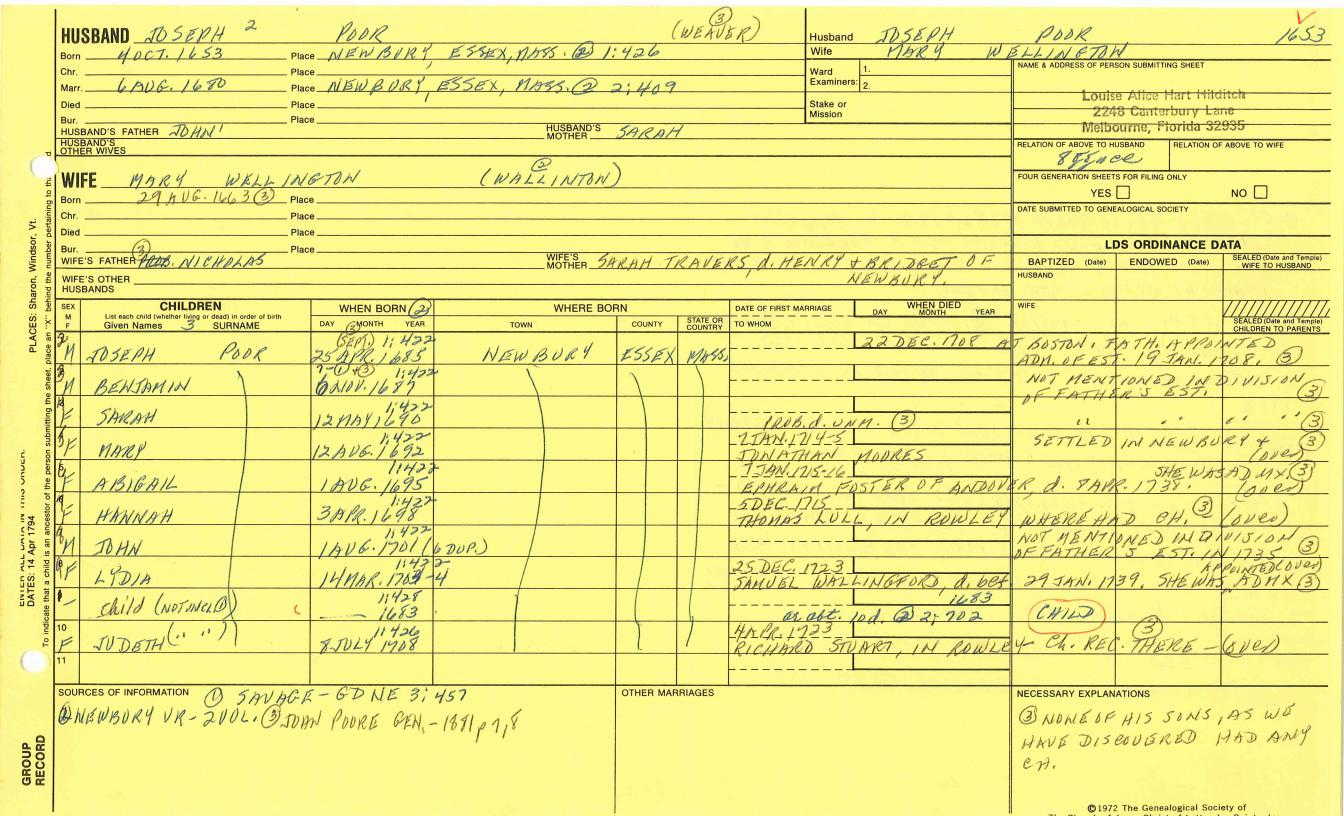 HUSBAND JOSEPH 2 POOR (WEAVER) ③
Born 4 OCT. 1653 Place NEWBURY, ESSEX, MASS. ② 1:426
Chr. Place
Marr. 6 AUG. 1680 Place NEWBURY, ESSEX, MASS. ② 2:409
Died Place
Bur. Place
HUSBAND'S FATHER JOHN' HUSBAND'S MOTHER SARAH
HUSBAND'S OTHER WIVES
Husband JOSEPH POOR 1653
Wife MARY WELLINGTON
Ward Examiners: 1. 2.
Stake or Mission
NAME & ADDRESS OF PERSON SUBMITTING SHEET
Louise Alice Hart Hilditch
2248 Canterbury Lane
Melbourne, Florida 32935
RELATION OF ABOVE TO HUSBAND RELATION OF ABOVE TO WIFE
FOUR GENERATION SHEETS FOR FILING ONLY
YES NO
DATE SUBMITTED TO GENEALOGICAL SOCIETY
WIFE MARY WELLINGTON (WALLINTON) ②
Born 29 AUG. 1663 ③ Place
Chr. Place
Died Place
Bur. Place
WIFE'S FATHER ③ NICHOLAS WIFE'S MOTHER SARAH TRAVERS, d. HENRY + BRIDGET OF
NEWBURY.
WIFE'S OTHER HUSBANDS
LDS ORDINANCE DATA
BAPTIZED (Date) ENDOWED (Date) SEALED (Date and Temple) WIFE TO HUSBAND
HUSBAND
WIFE
SEALED (Date and Temple) CHILDREN TO PARENTS
SEX M F CHILDREN List each child (whether living or dead) in order of birth Given Names 3 SURNAME
WHEN BORN ② DAY MONTH YEAR
WHERE BORN TOWN COUNTY STATE OR COUNTRY
DATE OF FIRST MARRIAGE TO WHOM
WHEN DIED DAY MONTH YEAR
(SEPT.) 1:422 22 DEC. 1708 AT BOSTON. FATH. APPOINTED
M JOSEPH POOR 25 APR. 1685 NEWBURY ESSEX MASS. ADM. OF EST. 19 JAN. 1708. ③
7-① + ③ 1:422 NOT MENTIONED IN DIVISION
M BENJAMIN 6 NOV. 1687 OF FATHER'S EST. ③
1:422 " " " " ③
F SARAH 12 MAY 1690 PROB. d. UNM. ③
1:422 7 JAN. 1714-5 SETTLED IN NEWBURY + ③
F MARY 12 AUG. 1692 JONATHAN MOORES (over)
1:422 7 JAN. 1715-16 SHE WAS ADMX. ③
F ABIGAIL 1 AUG. 1695 EPHRAIM FOSTER OF ANDOVER, d. 8 APR. 1738. (over)
1:422 5 DEC. 1715 ③
F HANNAH 3 APR. 1698 THOMAS LULL, IN ROWLEY WHERE HAD CH. (over)
1:422 NOT MENTIONED IN DIVISION
M JOHN 1 AUG. 1701 (6 DUP.) OF FATHER'S EST. IN 1735 ③
1:422 25 DEC. 1723 APPOINTED (over)
F LYDIA 14 MAR. 1703-4 SAMUEL WALLINGFORD, d. bef. 29 JAN. 1739. SHE WAS ADMX ③
1:428 1683
- child (NOT INCL ①) 1683 or abt. 10 d. ② 2:702 CHILD
10 1:426 4 APR. 1723 ③
F JUDETH (" ") 8 JULY 1708 RICHARD STUART, IN ROWLEY CH. REC. THERE - (over)
11
SOURCES OF INFORMATION ① SAVAGE - GD NE 3:457
② NEWBURY VR - 2 VOL. ③ JOHN POORE GEN. - 1881 p 7, 8
OTHER MARRIAGES
NECESSARY EXPLANATIONS
③ NONE OF HIS SONS, AS WE
HAVE DISCOVERED HAD ANY
CH.
©1972 The Genealogical Society of
PLACES: Sharon, Windsor, Vt.
ENTER ALL DATA IN THIS ORDER:
DATES: 14 Apr 1794
To indicate that a child is an ancestor of the person submitting the sheet, place an "X" behind the number pertaining to
GROUP RECORD